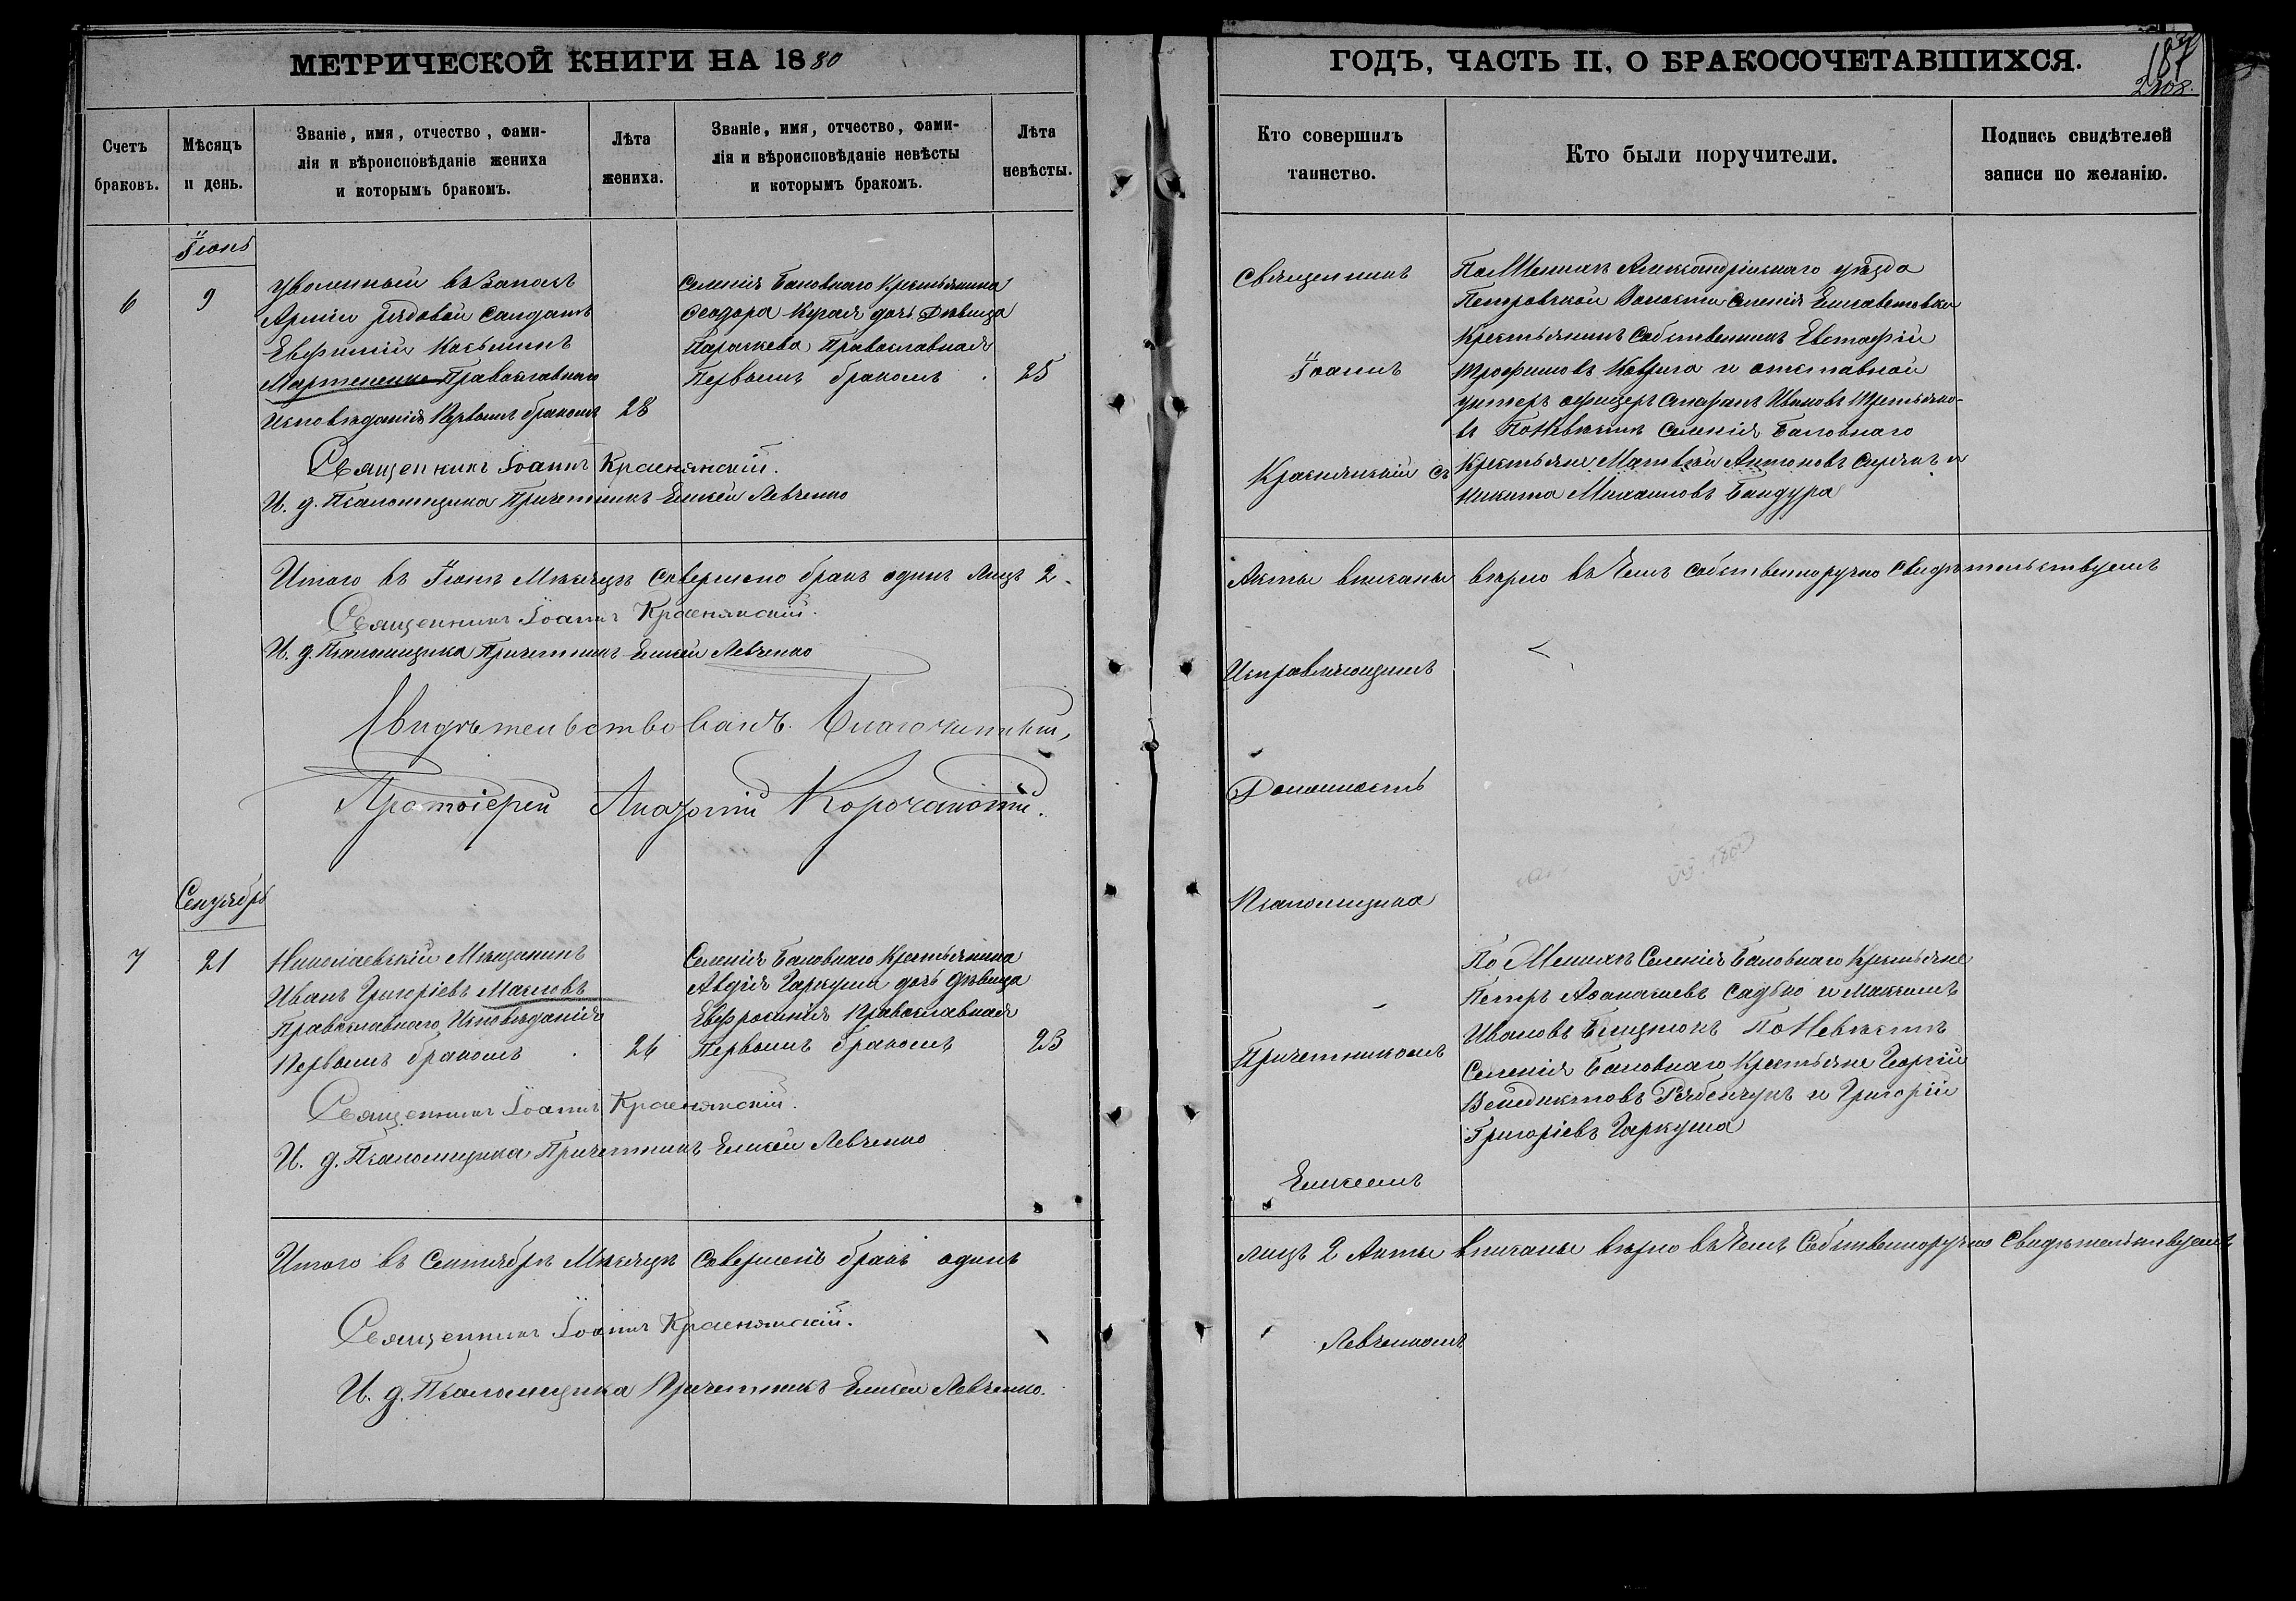 МЕТРИЧЕСКОЙ КНИГИ НА 1880
Счетъ браковъ.
Мѣсяцъ и день.
Званіе, имя, отчество, фами-
лія и вѣроисповѣданіе жениха
и которымъ бракомъ.
Лѣта жениха.
Званіе, имя, отчество, фами-
лія и вѣроисповѣданіе невѣсты
и которымъ бракомъ.
Лѣта невѣсты.
Іюнь
6
9
Уволенный въ Запасъ
Арміи рядовой Солдатъ
Евфимій Косьминъ
Мартененко Православнаго
Исповѣданія Первымъ бракомъ
28
Селенія Баловнаго Крестьянина
Ѳеодора Кугая дочь Дѣвица
Параскева Православная
Первымъ бракомъ
25
Священникъ Іоаннъ Краснянскій.
И. д. Псаломщика Причетникъ Елисей Левченко
Итого въ Іюнѣ Мѣсяцѣ Совершено бракъ одинъ Лицъ 2.
Священникъ Іоаннъ Краснянскій.
И. д. Псаломщика Причетникъ Елисей Левченко
Свидѣтельствовалъ. Благочинный,
Протоіерей Корочанскій.
Сентябрь
7
21
Николаевскій Мѣщанинъ
Иванъ Григоріевъ Масловъ
Православнаго Исповѣданія
Первымъ бракомъ
26
Селенія Баловнаго Крестьянина
Авдія Гаркуши дочь дѣвица
Евфросинія Православная
Первымъ бракомъ
23
Священникъ Іоаннъ Краснянскій.
И. д. Псаломщика Причетникъ Елисей Левченко
Итого въ Сентябрѣ Мѣсяцѣ Совершенъ бракъ одинъ
Священникъ Іоаннъ Краснянскій.
И. д. Псаломщика Причетникъ Елисей Левченко.
ГОДЪ, ЧАСТЬ II, О БРАКОСОЧЕТАВШИХСЯ.
Кто совершилъ таинство.
Кто были поручители.
Подпись свидѣтелей записи по желанію.
Священникъ
Іоаннъ
Краснянскій съ
По Женихѣ Александрійскаго уѣзда
Петровской Волости Селенія Елисаветовки
Крестьянинъ Собственникъ Евстафій
Трофимовъ и отставной
унтеръ офицеръ Ивановъ
По Невѣстѣ Селенія Баловнаго
Крестьяне Матвѣй Антоновъ и
Никита Михаиловъ Бандура
Акты вписаны вѣрно въ чемъ собственноручно свидѣтельствуемъ
Исправляющимъ
Должность
Псаломщика
Причетникомъ
Елисеемъ
По Женихѣ Селенія Баловнаго Крестьяне
Петръ Аѳанасіевъ Садько и Максимъ
Ивановъ По Невѣстѣ
Селенія Баловнаго Крестьяне Георгій
Венедиктовъ Рябенчукъ и Григорій
Григоріевъ Гаркуша
лицъ 2 Акты вписаны вѣрно въ чемъ Собственноручно Свидѣтельствуемъ
Левченкомъ